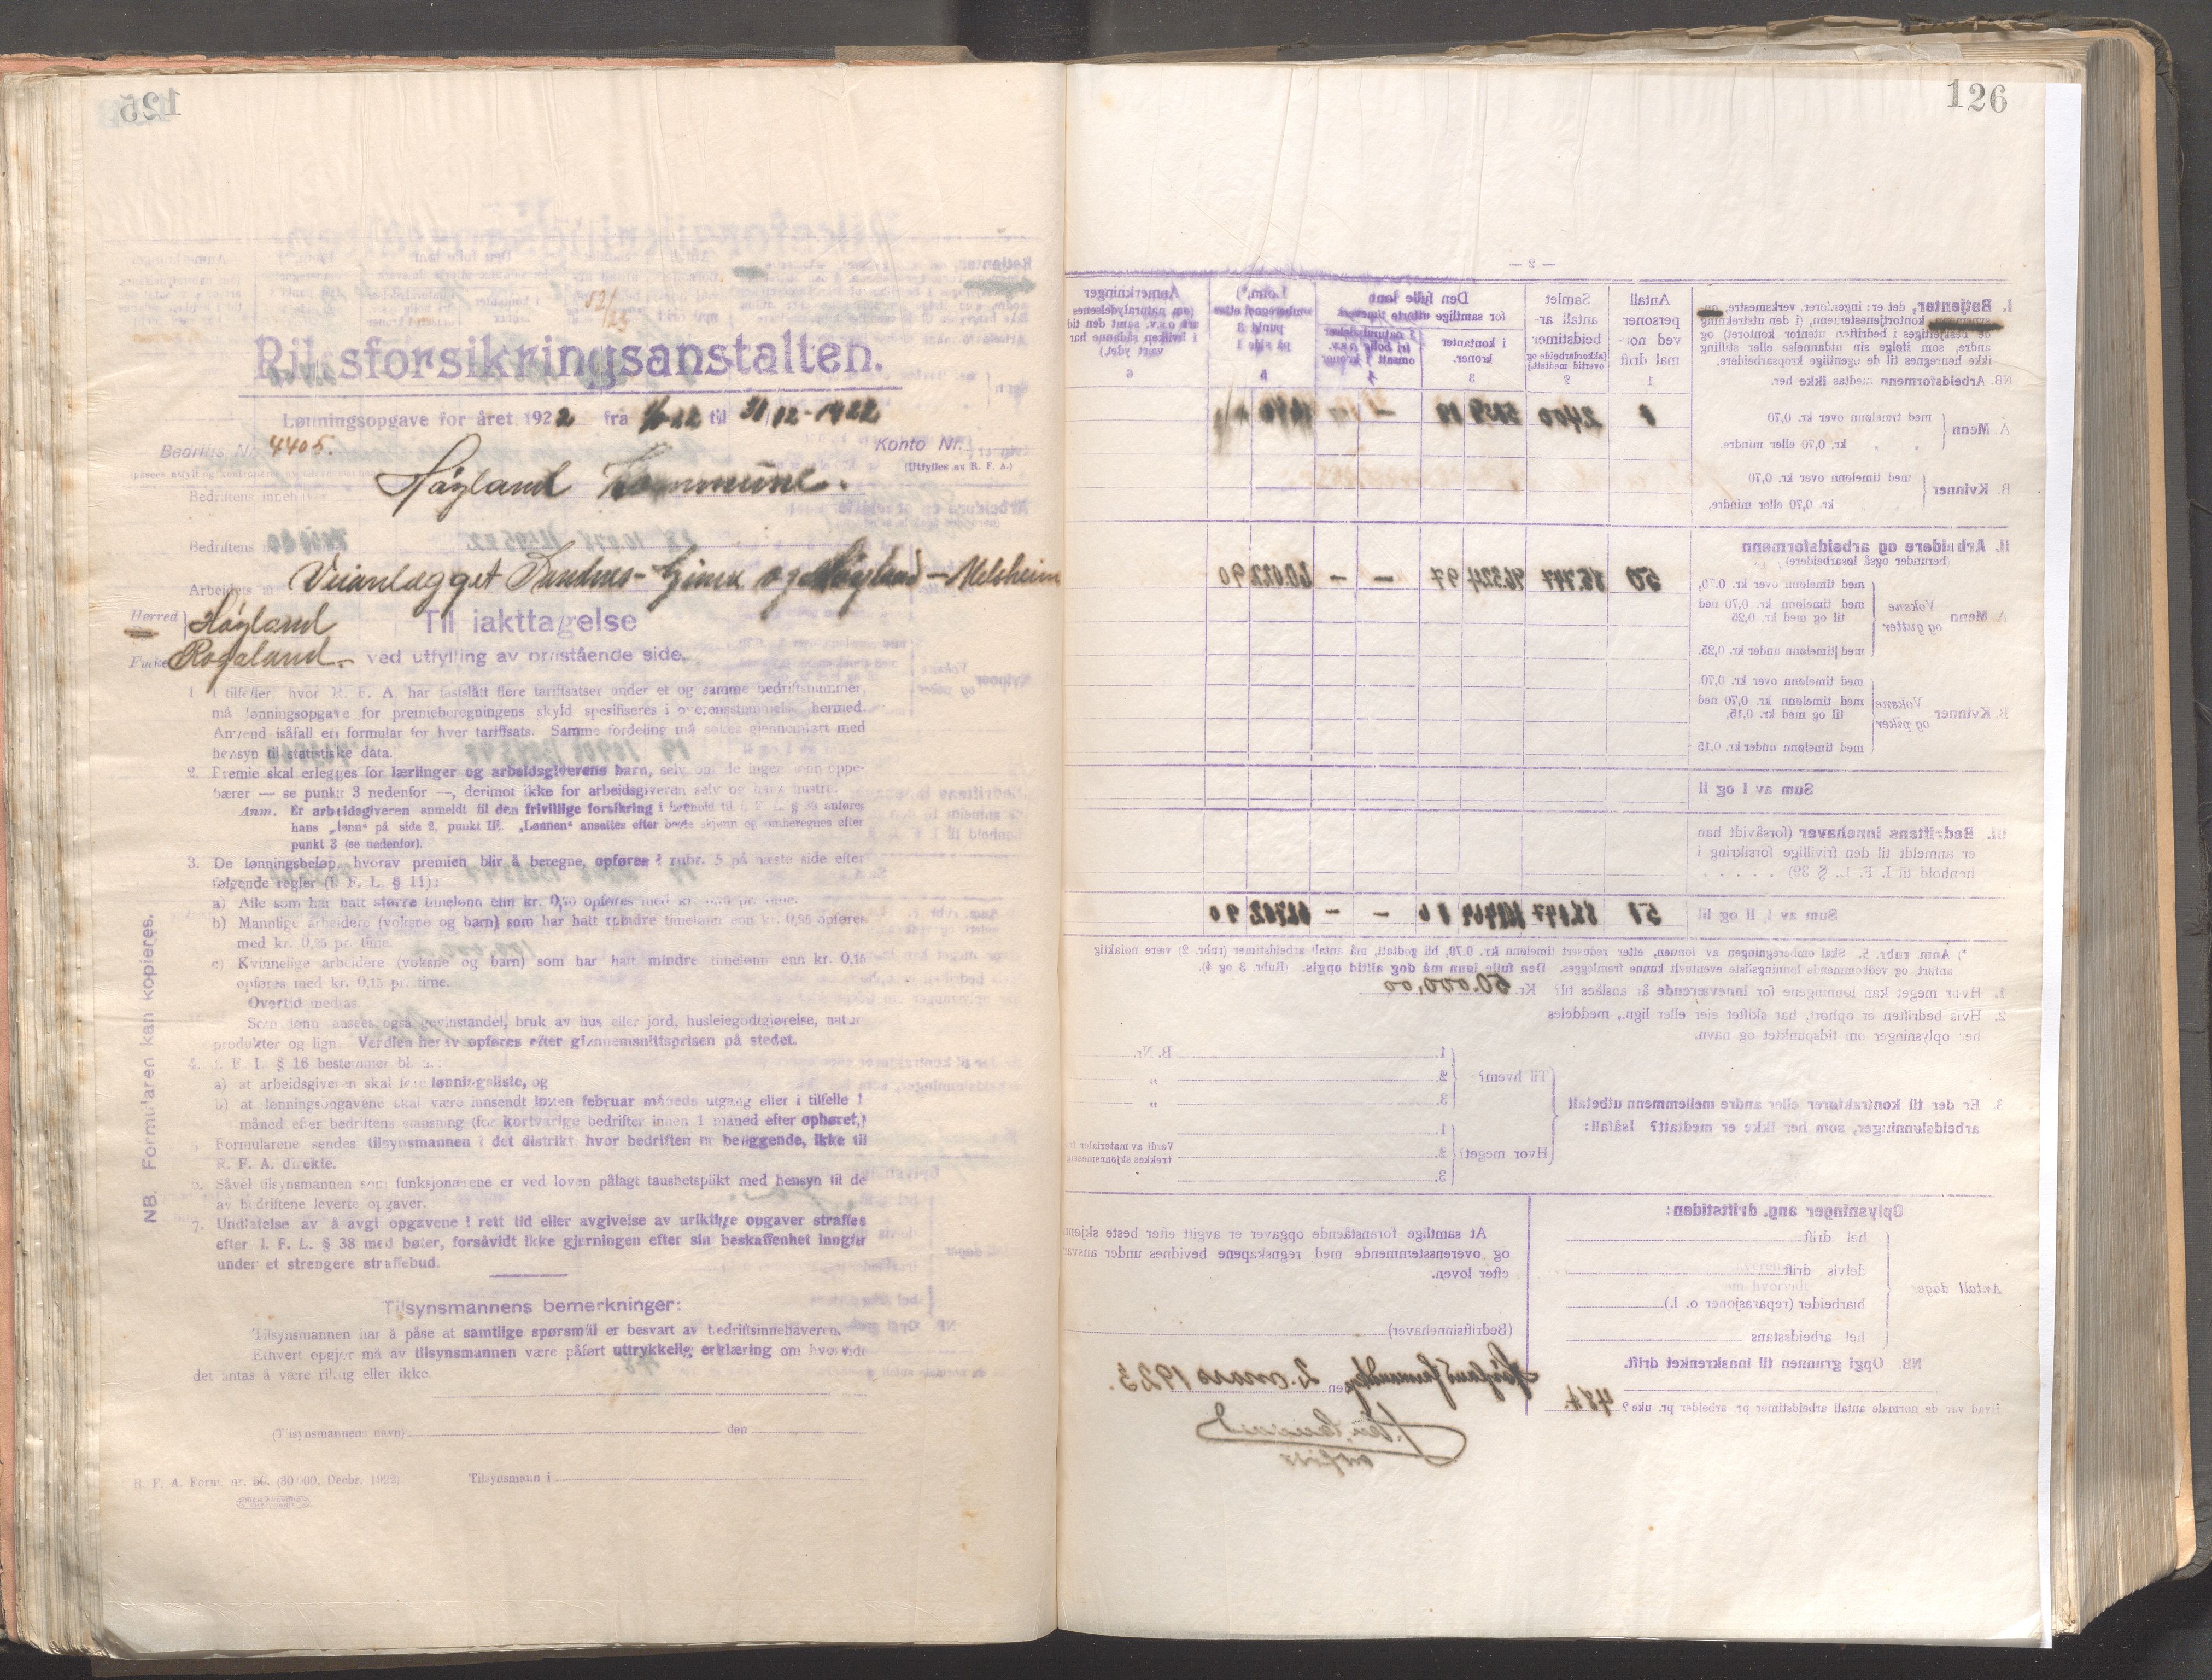 125
52/23
Riksforsikringsanstalten.
Lønningsopgave for året 1922 fra 1/1 22 til 31/12 - 1922
Bedrifts Nr. 4405. Konto Nr.
(Utfylles av R. F. A.)
Høyland Kommune.
Bedriftens innehaver
Bedriftens
Veianlægget Sandnes - og Høyland - Melsheim
Arbeidets
Herred Høyland
Fylke Rogaland.
Til iakttagelse
ved utfylling av omstående side.
1. I tilfeller, hvor R. F. A. har fastslått flere tariffsatser under et og samme bedriftsnummer,
må lønningsopgave for premieberegningens skyld spesifiseres i overensstemmelse hermed.
Anvend isåfall en formular for hver tariffsats. Samme fordeling må søkes gjennemført med
hensyn til statistiske data.
2. Premie skal erlegges for lærlinger og arbeidsgiverens barn, selv om de ingen lønn oppe-
bærer — se punkt 3 nedenfor —, derimot ikke for arbeidsgiveren selv og hans hustru.
Anm. Er arbeidsgiveren anmeldt til den frivillige forsikring i henhold til I. F. L. § 39 anføres
hans „lønn“ på side 2, punkt III. „Lønnen“ ansettes efter beste skjønn og omberegnes efter
punkt 3 (se nedenfor).
3. De lønningsbeløp, hvorav premien blir å beregne, opføres i rubr. 5 på næste side efter
følgende regler (I. F. L. § 11):
a) Alle som har hatt større timelønn enn kr. 0,70 opføres med kr. 0,70 pr. time.
b) Mannlige arbeidere (voksne og barn) som har hatt mindre timelønn enn kr. 0,25 opføres
med kr. 0,25 pr. time.
c) Kvinnelige arbeidere (voksne og barn) som har hatt mindre timelønn enn kr. 0,15
opføres med kr. 0,15 pr. time.
Overtid medtas.
Som lønn ansees også gevinstandel, bruk av hus eller jord, husleiegodtgjørelse, natur
produkter og lign. Verdien herav opføres efter gjennemsnittsprisen på stedet.
4. I. F. L. § 16 bestemmer bl. a.:
a) at arbeidsgiveren skal føre lønningsliste, og
b) at lønningsopgavene skal være innsendt innen februar måneds utgang eller i tilfelle 1
måned efter bedriftens stansning (for kortvarige bedrifter innen 1 måned efter ophøret.)
5. Formularene sendes tilsynsmannen i det distrikt, hvor bedriften er beliggende, ikke til
R. F. A. direkte.
6. Såvel tilsynsmannen som funksjonærene er ved loven pålagt taushetsplikt med hensyn til de
av bedriftene leverte opgaver.
7. Undlatelse av å avgi opgavene i rett tid eller avgivelse av uriktige opgaver straffes
efter I. F. L. § 38 med bøter, forsåvidt ikke gjerningen efter sin beskaffenhet inngår
under et strengere straffebud.
Tilsynsmannens bemerkninger:
Tilsynsmannen har å påse at samtlige spørsmål er besvart av bedriftsinnehaveren.
Ethvert opgjør må av tilsynsmannen være påført uttrykkelig erklæring om hvorvidt
det antas å være riktig eller ikke.
(Tilsynsmannens navn) den
R. F. A. Form. nr. 60. (80 000. Decbr. 1922) Tilsynsmann i
NB. Formularen kan kopieres.
126
— 2 —
I. Betjenter, det er: ingeniører, verksmestre,
kontortjenestemenn, (i den utstrekning
de beskjeftiges i bedriften utenfor kontoret) og
andre, som ifølge sin utdannelse eller stilling
ikke henregnes til de egentlige kropsarbeidere.
NB. Arbeidsformenn medtas ikke her.
Antall personer ved normal drift
1
Samlet antall arbeidstimer (akkordarbeide og overtid medtatt)
2
Den fulle lønn for samtlige utførte timeverk
i kontanter kroner.
3
i naturalydelser fri bolig o.s.v. omsatt i kroner
4
Lønn,*) omberegnet efter punkt 3 på side 1
5
Anmerkninger (om naturalydelsenes art o.s.v. samt den tid i hvilken sådanne har vært ydet.)
6
A. Menn med timelønn over kr. 0,70 1 2400
„ „ kr. 0,70 eller mindre.
B. Kvinner med timelønn over kr. 0,70
„ „ kr. 0,70 eller mindre.
II. Arbeidere og arbeidsformenn
(herunder også løsarbeidere)
A. Menn Voksne og gutter
med timelønn over kr. 0,70, 50 85.747 96.324 97 — — 60.022 90
med timelønn kr. 0,70 ned
til og med kr. 0,25
med timelønn under kr. 0,25.
B. Kvinner Voksne og piker
med timelønn over kr. 0,70.
med timelønn kr. 0,70 ned
til og med kr. 0,15,
med timelønn under kr. 0,15
Sum av I og II
III. Bedriftens innehaver (forsåvidt han
er anmeldt til den frivillige forsikring i
henhold til I. F. L. § 39)
Sum av I, II og III 51 88.147 — — 61.702 90
*) Anm. rubr. 5. Skal omberegningen av lønnen, efter redusert timelønn kr. 0,70, bli godtatt, må antall arbeidstimer (rubr. 2) være nøiaktig
anført, og vedkommende lønningsliste eventuelt kunne fremlegges. Den fulle lønn må dog alltid opgis. (Rubr. 3 og 4).
1. Hvor meget kan lønningene for inneværende år anslåes til? Kr. 50.000,00
2. Hvis bedriften er ophørt, har skiftet eier eller lign., meddeles
her oplysninger om tidspunktet og navn.
3. Er der til kontraktører eller andre mellemmenn utbetalt
arbeidslønninger, som her ikke er medtatt? Isåfall:
Til hvem? 1. B. Nr.
2. „
3. „
Hvor meget? 1.
2.
3.
Verdi av materialer
trekkes skjønsmessig
Oplysninger ang. driftstiden:
Antall dager
hel drift
delvis drift
biarbeider (reparasjoner o. l.)
hel arbeidsstans
NB. Opgi grunnen til innskrenket drift.
Hvad var de normale antall arbeidstimer pr. arbeider pr. uke? 48 t.
At samtlige foranstående opgaver er avgitt efter beste skjønn
og overensstemmende med regnskapene bevidnes under ansvar
efter loven.
(Bedriftsinnehaver)
den 2. mars 1923.